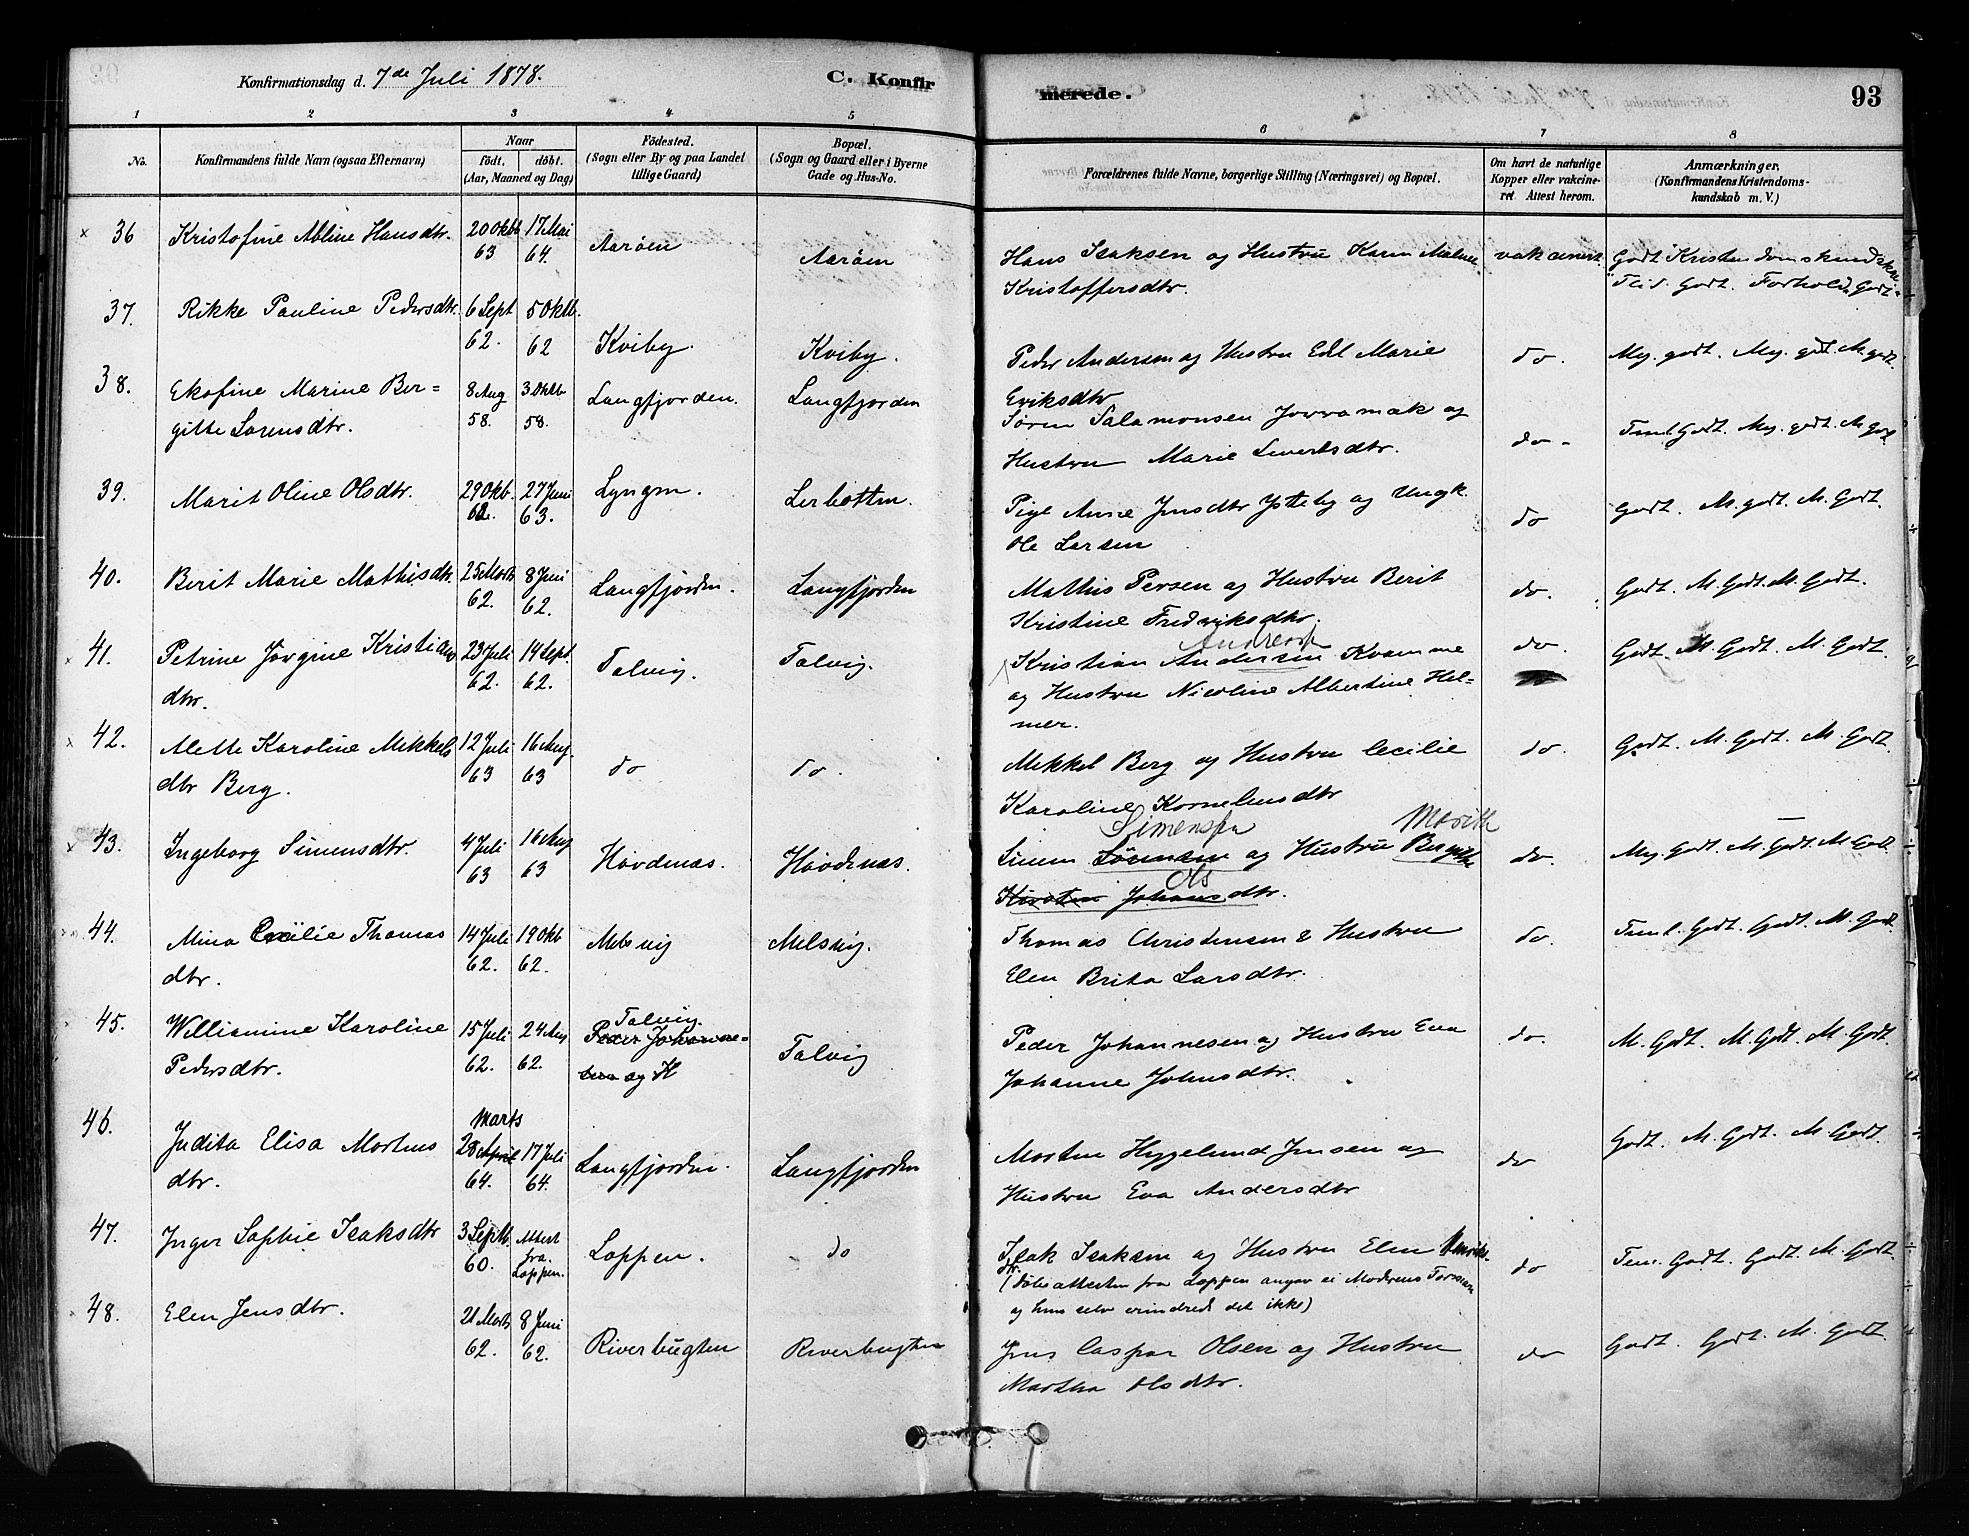 Konfirmationsdag d. 7de Juli 1878. C. Konfir
merede. 93
1 2 3 4 5 6 7 8
No. Konfirmandens fulde Navn (ogsaa Efternavn) Naar født. døbt. (Aar, Maaned og Dag) Födested. (Sogn eller By og paa Landet tillige Gaard) Bopæl. (Sogn og Gaard eller i Byerne Gade og Hus-No.
Forældrenes fulde Navne, borgerlige Stilling (Næringsvei) og Bopæl. Om havt de naturlige Kopper eller vakcineret Attest herom. Anmærkninger. (Konfirmandens Kristendomskundskab m. V.)
× 36 Kristofine Abline Hansdtr. 20 Oktb 63 17 Mai 64. Aarøen Aarøen
Hans Isaksen og Hustru Karen Malene vakcineret Godt Kristendomskundskab
Kristoffersdtr. Flid Godt. Forhold Godt
37. Rikke Pauline Pedersdtr. 6 Sept 62. 5 Oktb. 62 Kviby. Kviby.
Peder Andersen og Hustru Edl Marie do. Mg. godt. Mg. godt. M. godt.
Eriksdtr
38. Ekofine Marine Ber=
gitte Sørensdtr. 8 Aug 58. 3 Oktb 58. Langfjorden. Langfjorden
Søren Salamonsen Jovvamak og
Hustru Marie Sivertsdtr. do. Teml. Godt. Mg. godt. M. god
39. Marit Oline Olsdtr. 29 Okb. 62. 27 Juni 63. Lyngen. Lerbotten.
Pige Anne Jensdtr Ytteby og Ungk. do Godt. M. godt. M. Godt
Ole Larsen
40. Berit Marie Mathisdtr. 25 Marts 62. 8 Juni 62. Langfjorden. Langfjorden
Mathis Persen og Hustru Berit do. Godt. M. Godt. M. Godt.
Kristine Fredriksdtr.
× 41. Petrine Jørgine Kristians
dtr. 23 Juli 62. 14 Sept. 62. Talvig. Talvig.
Kristian Andersen Kvamme do. Godt. M. Godt. M. Godt
og Hustru Nicoline Albertine Hel=
mer.
× 42. Alette Karoline Mikkels
dtr Berg. 12 Juli 63 16 Aug. 63 do do.
Mikkel Berg og Hustru Cecilie do. Godt. M. Godt. M. Godt
Karoline Korneliusdtr
× 43. Ingeborg Simensdtr. 4 Juli 63 16 Aug 63 Hovdenæs. Hovdenæs.
Simensen Marith
Simen Sörensen og Hustru Bergithe do. Mg. Godt. M. Godt. M. God.
Ols
Kirsten Johansdtr.
44. Mina Cecilie Thomas
dtr. 14 Juli 62. 19 Okb 62. Melsvig Melsvig.
Thomas Christensen & Hustru do. Teml. Godt. Godt. M. Godt.
Elen Brita Larsdtr.
45. Williamine Karoline
Pedersdtr. 15 Juli 62. 24 Aug 62. Talvig. Peder Johanne=
sen og H Talvig
Peder Johannesen og Hustru Eva do. M. Godt. M. Godt. M. Godt.
Johanne Johnsdtr.
46. Judita Elisa Mortens
dtr. Marts 28 April 64. 17 Juli 64. Langfjorden. Langfjorden
Morten Hyggelund Jensen og do Godt. M. Godt. M. Godt.
Hustru Eva Andersdtr
47. Inger Sophie Isaksdtr 3 Septb. 60. Attest fra Loppen. Loppen. do
Isak Isaksen og Hustru Elen Henriks- do Teml. Godt. Godt. M. Godt
dtr. (Døbsattesten fra Loppen angav ei Moderens Fornavn
og hun selv erindrede det ikke)
48. Elen Jensdtr. 21 Marts 62. 8 Juni 62. Riverbugten Riverbugten
Jens Caspar Olsen og Hustru do Godt. Godt. M. Godt
Martha Olsdtr.